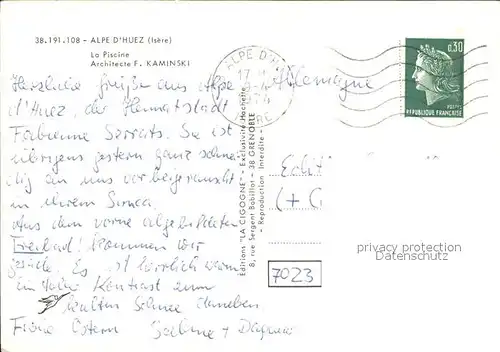 38.191.108 - ALPE D'HUEZ (Isère)
La Piscine
Architecte F. KAMINSKI
ALPE D'H
17 H
1974
ISERE
0,30
POSTES
REPUBLIQUE FRANÇAISE
Allemagne
Herzliche Grüße aus Alpe
d'Huez, der Heimatstadt
Fabienne Serrats. Sie ist
übrigens gestern ganz schnei-
dig an uns vorbeigerauscht
in ihrem Simca.
Aus dem vorne abgebildeten
Freibad! kommen wir
gerade. Es ist herrlich warm
Ein toller Kontrast zum
kalten Schnee daneben
Frohe Ostern
Editions "LA CIGOGNE" - Exclusivité Hachette
8, rue Sergent Bobillot - 38 GRENOBLE
Reproduction Interdite
Edit
(+ C
7023
privacy protection
Datenschutz